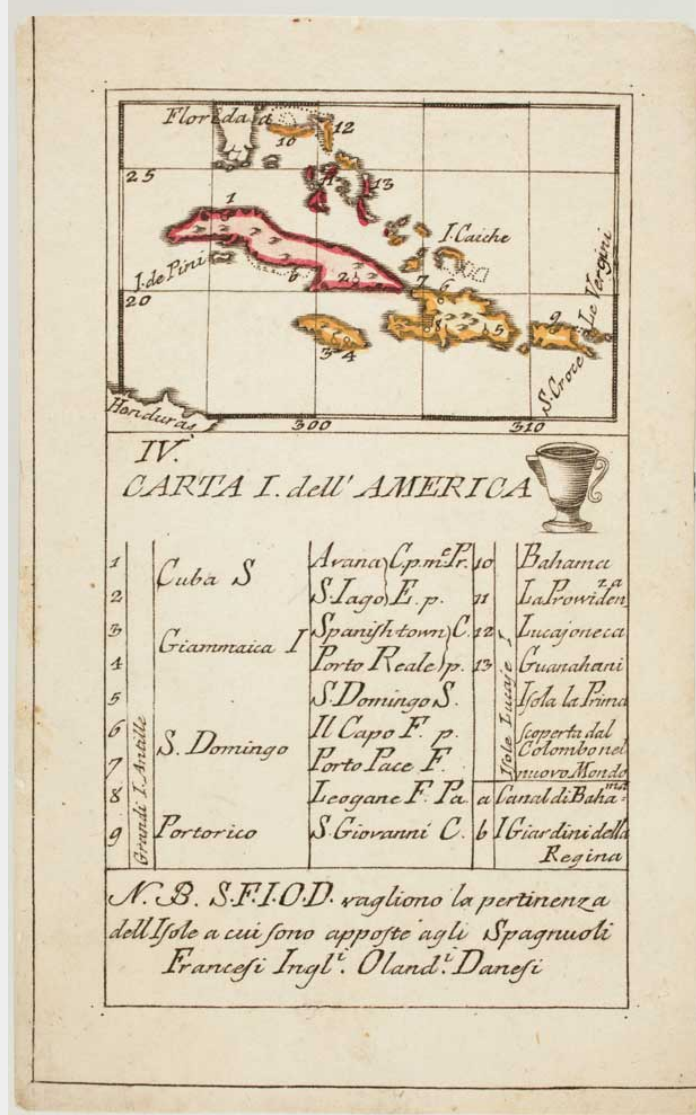 Florida a
10
12
25
11
13
1
I. Caiche
I. de Pini
b
2
7
6
20
3 4
8
5
9
Le Vergini
S. Croce
Honduras
300
310
IV.
CARTA I. dell' AMERICA
1 Cuba S Avana C. p. m.e Pr. 10 Bahama
2 S. Iago E. p. 11 La Prowiden.za
3 Giammaica I Spanishtown C. 12 Lucajoneca
4 Porto Reale p. 13 Guanahani
5 S. Domingo S. Isola la Prima
6 S. Domingo Il Capo F. p. scoperta dal
7 Porto Pace F. Colombo nel
nuovo Mondo
8 Leogane F. Pa a Canal di Baha.ma
9 Portorico S. Giovanni C. b I Giardini della
Regina
Grandi I. Antille
Isole Lucaje I
N. B. S.F.I.O.D. vagliono la pertinenza
dell Isole a cui sono apposte agli Spagnuoli
Francesi Ingl.i Oland.i Danesi